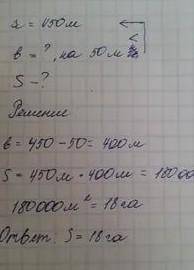 a = 450м
b = ?, на 50м <
S - ?
Решение
b = 450 - 50 = 400м
S = 450м · 400м = 18000
180000м² = 18га
Ответ: S = 18га